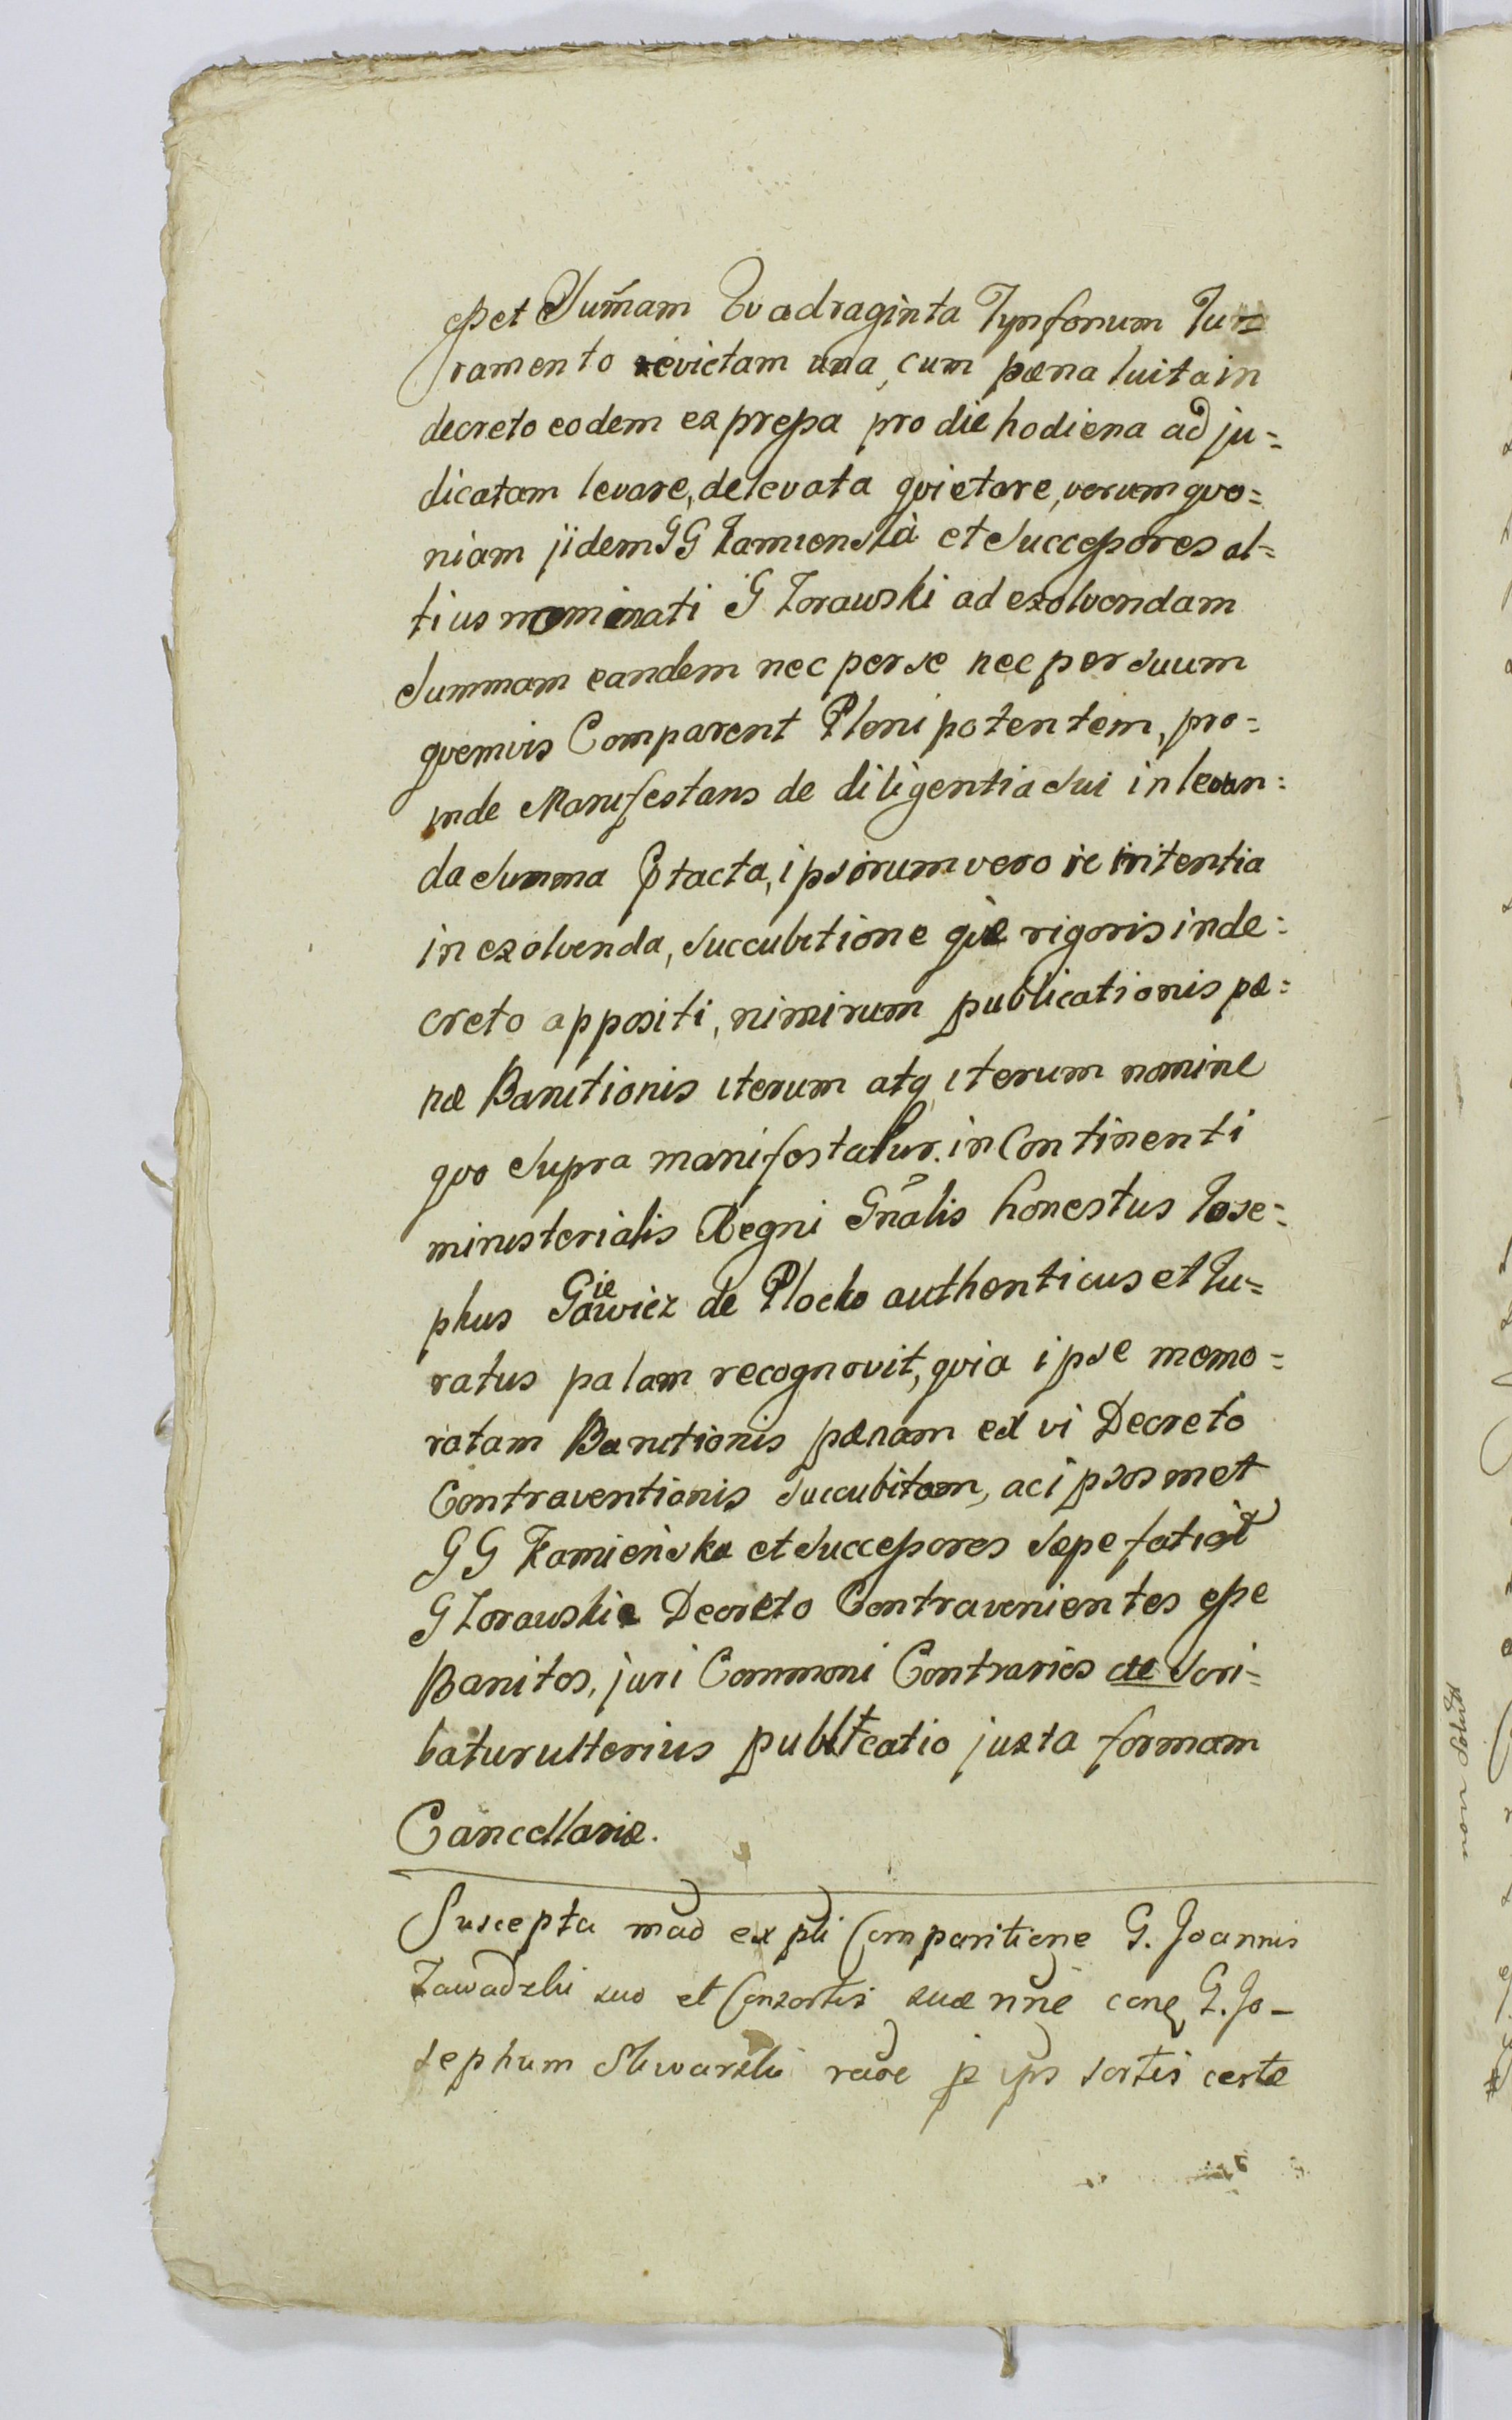 esset Sum̃am Quadraginta Tynfonum Ju=
ramento evictam una, cum pæna luita in
decreto eodem expressa pro die hodiena adju=
dicatam levare, delevata qvietare, verum qvo=
niam jidem GG Kamienska et Successores al=
tius nominati G Zorawski ad exolvendam
Summam eandem nec per se nec per Suum
qvemvis Comparent Plenipotentem, pro=
inde Manifestans de diligentia Sui in levan=
da Summa ptacta, ipsorum vero renitentia
in exolvenda, Succubitione qve rigoris in de=
creto appositi, nimirum publicationis pæ=
næ Banitionis iterum atq iterum nomine
qvo Supra manifestatur. in Continenti
ministerialis Regni Gnãlis honestus Jose=
phus Gawicz ie de Plocko authenticus et Ju=
ratus palam recognovit, qvia ipse memo=
ratam Banitionis pænam ex vi Decreto
Contraventionis Succubitam, ac ipsosmet
GG Kamieńska et Successores Sæpefati
G Zorawski Decreto Contravenientes esse
Banitos, juri Commoni Contrarios de Scri=
batur ulterius publicatio juxta formam
Cancellariæ.
Suscepta mad ex pli Comparitione G. Joannis
Zawadzki suo et Consortis suæ nñe conq G. Jo-
sephum Sliwarski raõe p ips sortis certæ
non